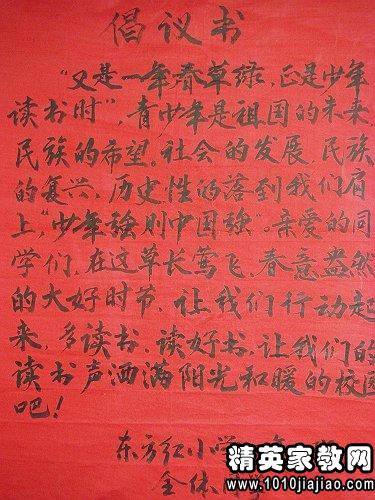 倡议书
"又是一年春草绿，正是少年
读书时"，青少年是祖国的未来，
民族的希望。社会的发展，民族
的复兴，历史性的落到我们肩
上，"少年强则中国强"。亲爱的同
学们，在这草长莺飞，春意盎然
的大好时节，让我们行动起
来，多读书，读好书，让我们的
读书声洒满阳光和暖的校园
吧！
东方红小学
全体
精英家教网
www.1010jiajiao.com